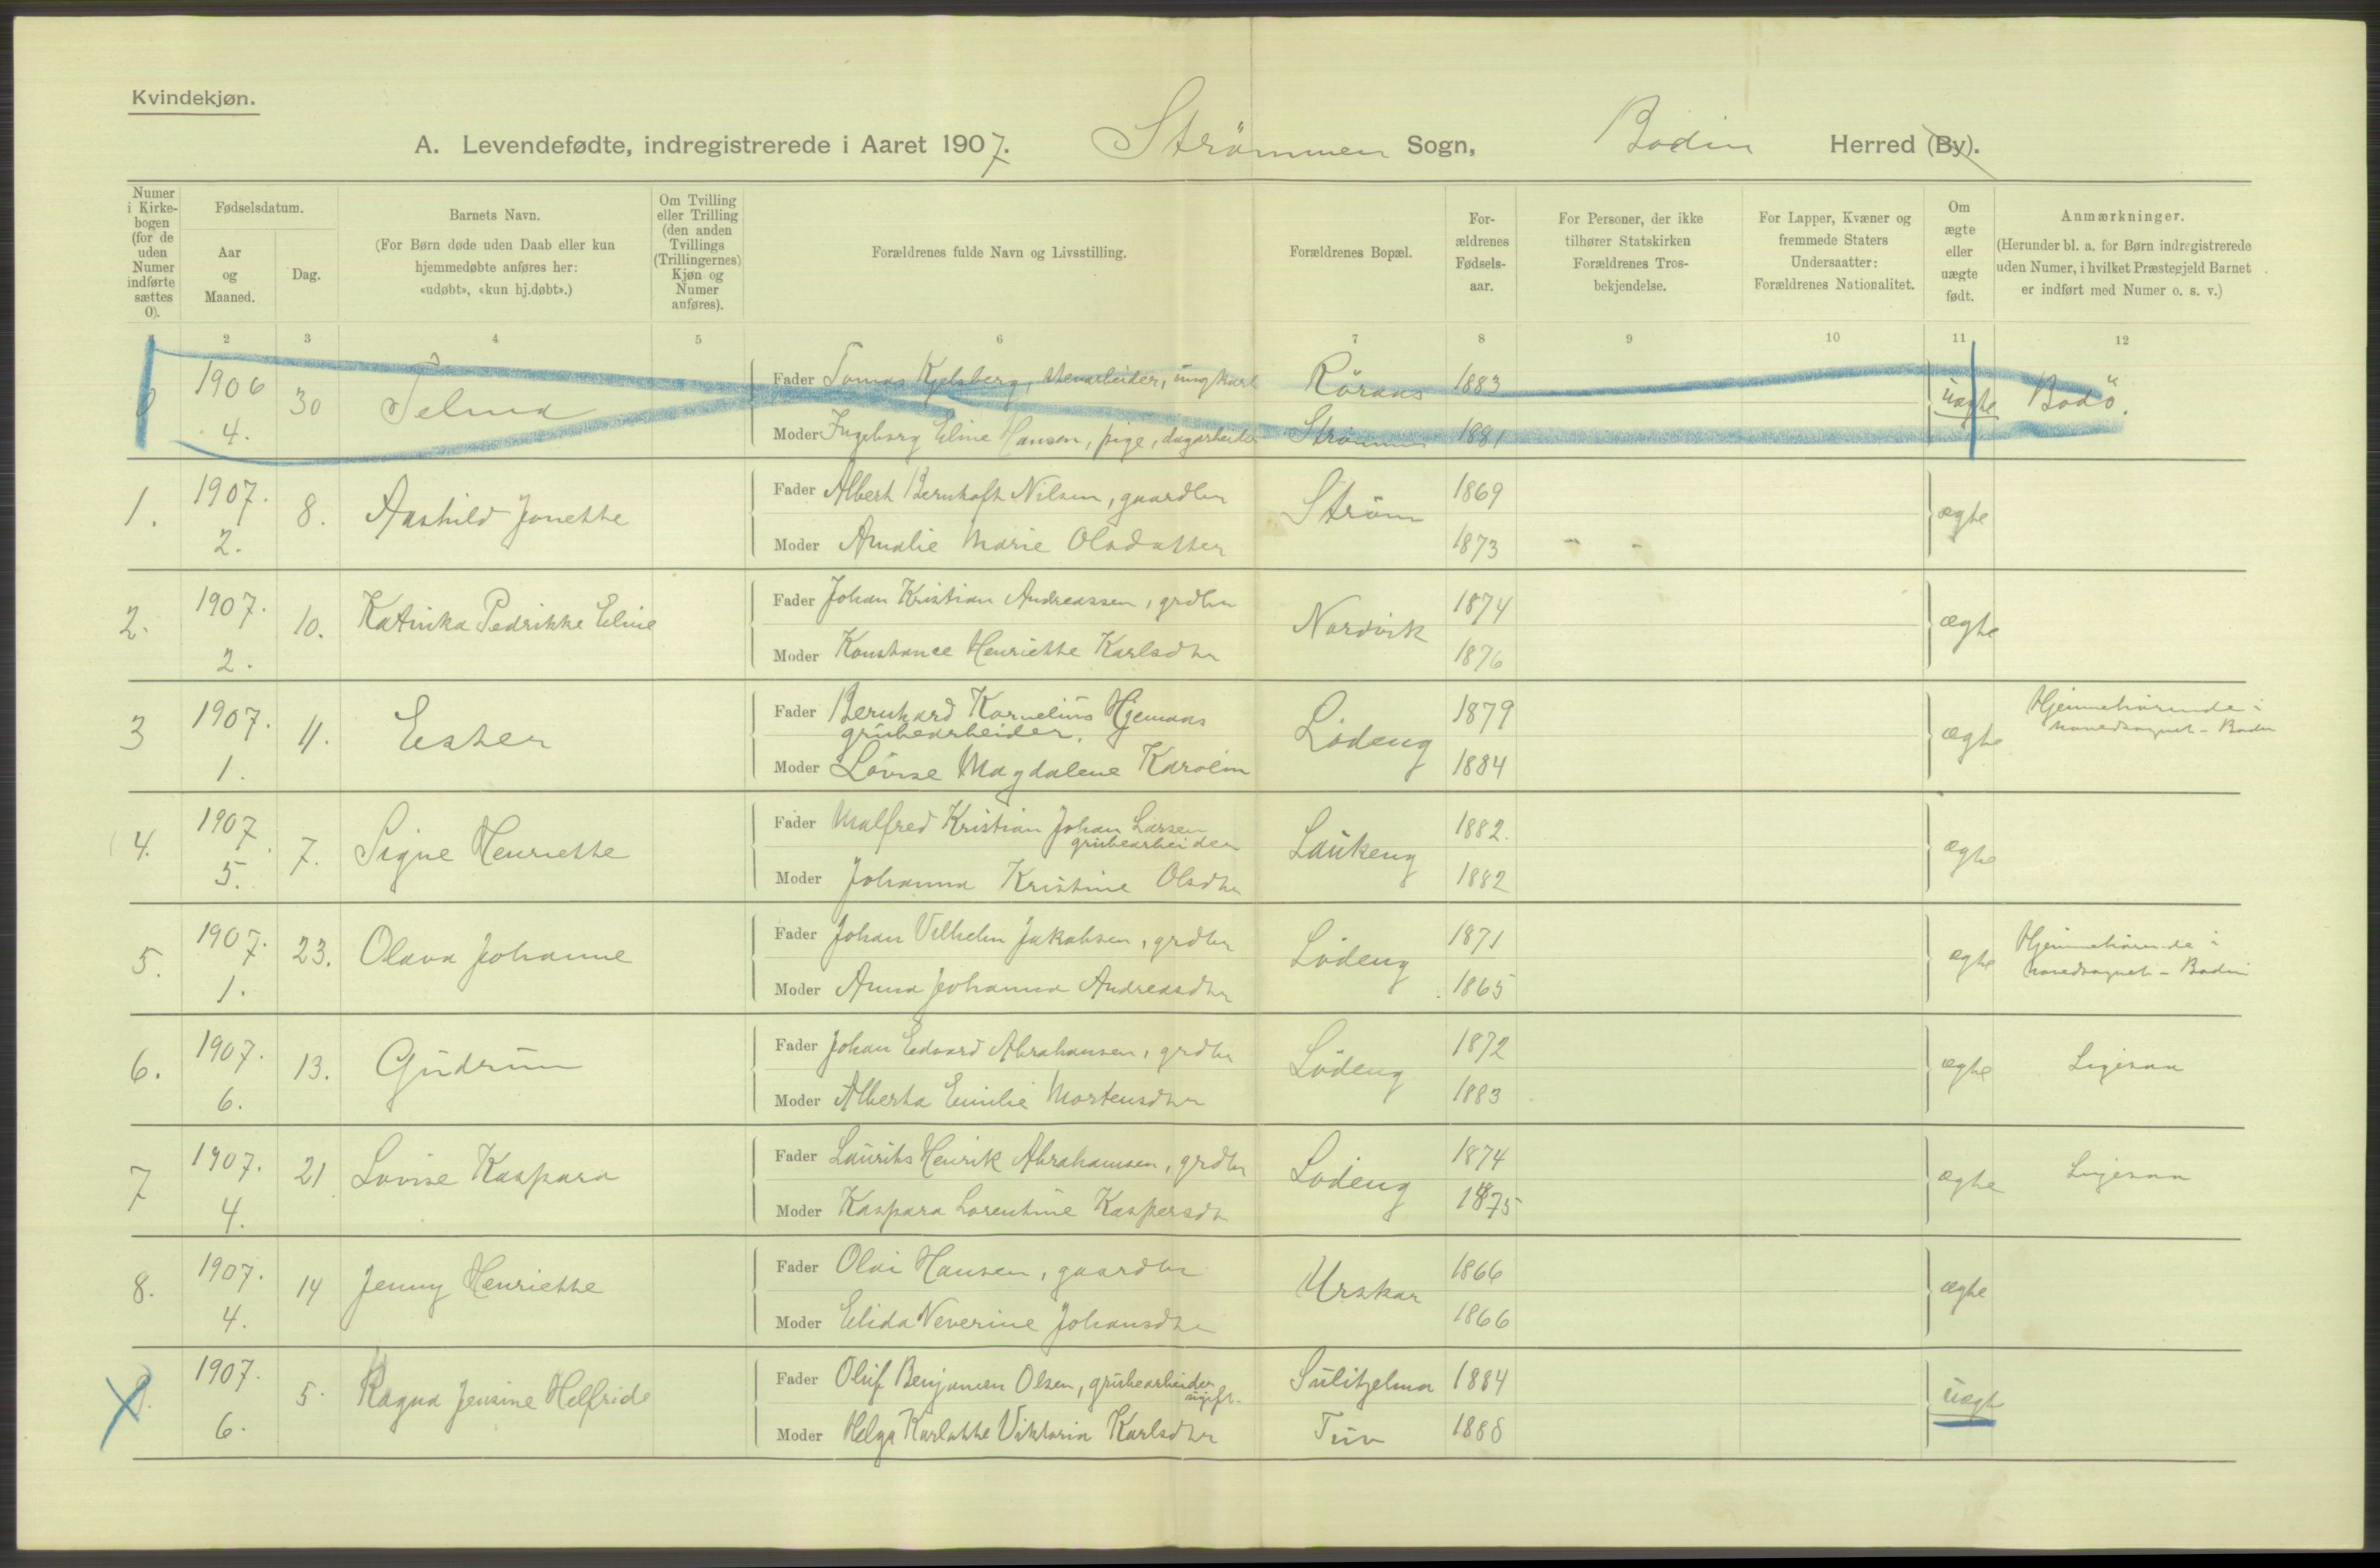 Kvindekjøn.
A. Levendefødte, indregistrerede i Aaret 1907. Strömmen Sogn, Bodin Herred (By).
Numer i Kirkebogen (for de uden Numer indførte sættes 0).
Fødselsdatum.
Aar og Maaned.
Dag.
Barnets Navn.
(For Børn døde uden Daab eller kun hjemmedøbte anføres her: «udøbt», «kun hj.døbt».)
Om Tvilling eller Trilling (den anden Tvillings (Trillingernes) Kjøn og Numer anføres).
Forældrenes fulde Navn og Livsstilling.
Forældrenes Bopæl.
Forældrenes Fødselsaar.
For Personer, der ikke tilhører Statskirken Forældrenes Trosbekjendelse.
For Lapper, Kvæner og fremmede Staters Undersaatter: Forældrenes Nationalitet.
Om ægte eller uægte født.
Anmærkninger.
(Herunder bl. a. for Børn indregistrerede uden Numer, i hvilket Præstegjeld Barnet er indført med Numer o. s. v.)
2 3 4 5 6 7 8 9 10 11 12
0 1906 4. 30 Selma
Fader Tomas Kjelsberg, stenarbeider, ungkarl Röraas 1883
Moder Ingeborg Eline Hansen, pige, dagarbeider Strömmen 1881
uægte Bodö.
1. 1907. 2. 8. Aashild Jonette
Fader Albert Bernhoft Nilsen, gaardbr Ström 1869
Moder Amalie Marie Olsdatter 1873
ægte
2. 1907. 2. 10. Katinka Pedrikke Eline
Fader Johan Kristian Andreassen, grdbr Nordvik 1874
Moder Konstance Henriette Karlsdtr 1876
ægte
3 1907. 1. 11. Ester
Fader Bernhard Kornelius Hjemaas
grubearbeider. Lödeng 1879
Moder Lovise Magdalene Karolin 1884
ægte Hjemmehörende i
hovedsognet - Bodin
4. 1907 5. 7. Signe Henriette
Fader Malfred Kristian Johan Larsen
grubearbeider Laukeng 1882.
Moder Johanna Kristine Olsdtr 1882
ægte
5. 1907. 1. 23. Olava Johanne
Fader Johan Vilhelm Jakobsen, grdbr Lödeng 1871
Moder Anna Johanna Andreasdtr 1865
ægte Hjemmehörende i
hovedsognet - Bodin
6. 1907. 6. 13. Gudrun
Fader Johan Edvard Abrahamsen, grdbr Lödeng 1872
Moder Alberta Emilie Mortensdtr 1883
ægte Ligesaa
7 1907. 4. 21 Lovise Kaspara
Fader Laurits Henrik Abrahamsen, grdbr Lödeng 1874
Moder Kaspara Lorentine Kaspersdtr 1875
ægte Ligesaa
8. 1907. 4. 14 Jenny Henriette
Fader Olai Hansen, gaardbr Urskar 1866
Moder Elida Neverine Johansdtr 1866
ægte
9. 1907. 6. 5. Ragna Jensine Helfride
Fader Oluf Benjamin Olsen, grubearbeider
ugift. Sulitjelma 1884
Moder Helga Karlotte Viktoria Karlsdtr Tuv 1888
uægte